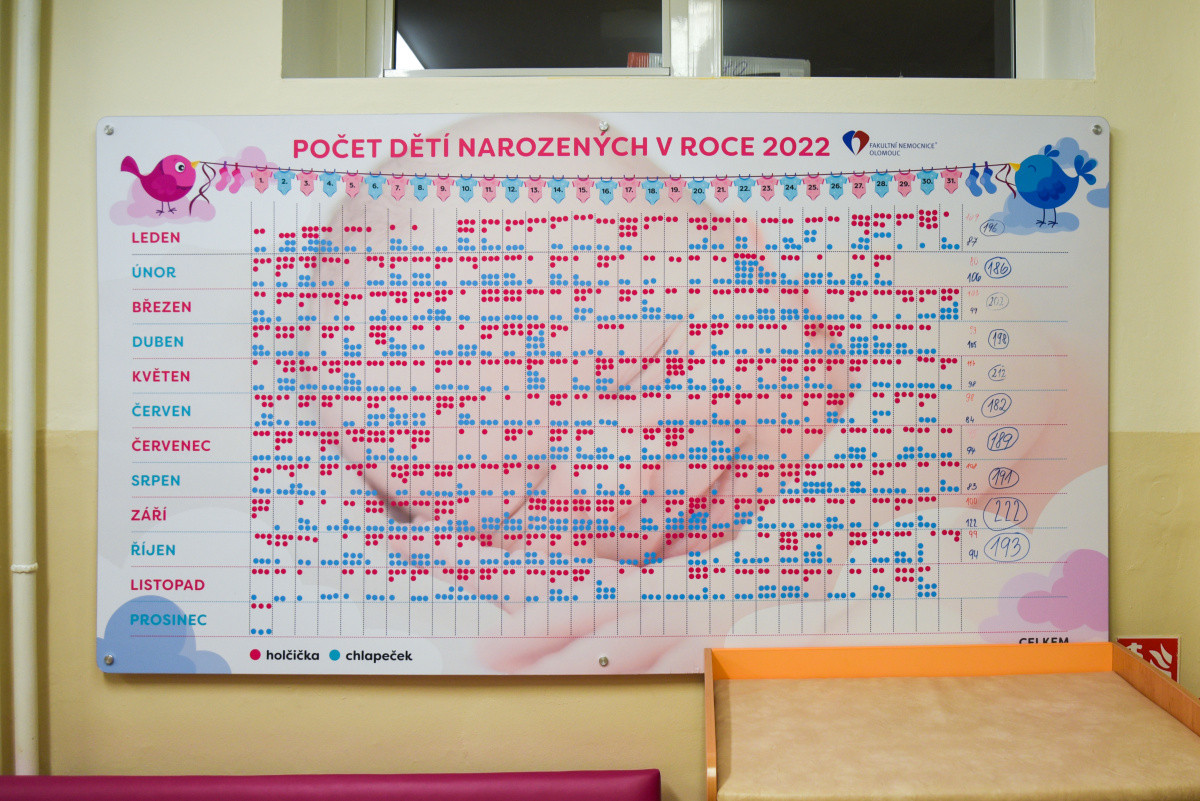 POČET DĚTÍ NAROZENÝCH V ROCE 2022
FAKULTNÍ NEMOCNICE
OLOMOUC
1. 2. 3. 4. 5. 6. 7. 8. 9. 10. 11. 12. 13. 14. 15. 16. 17. 18. 19. 20. 21. 22. 23. 24. 25. 26. 27. 28. 29. 30. 31.
LEDEN 109 87 196
ÚNOR 80 106 186
BŘEZEN 203
DUBEN 198
KVĚTEN 98 212
ČERVEN 98 84 182
ČERVENEC 94 189
SRPEN 108 83 191
ZÁŘÍ 100 122 222
ŘÍJEN 99 94 193
LISTOPAD
PROSINEC
CELKEM
holčička chlapeček